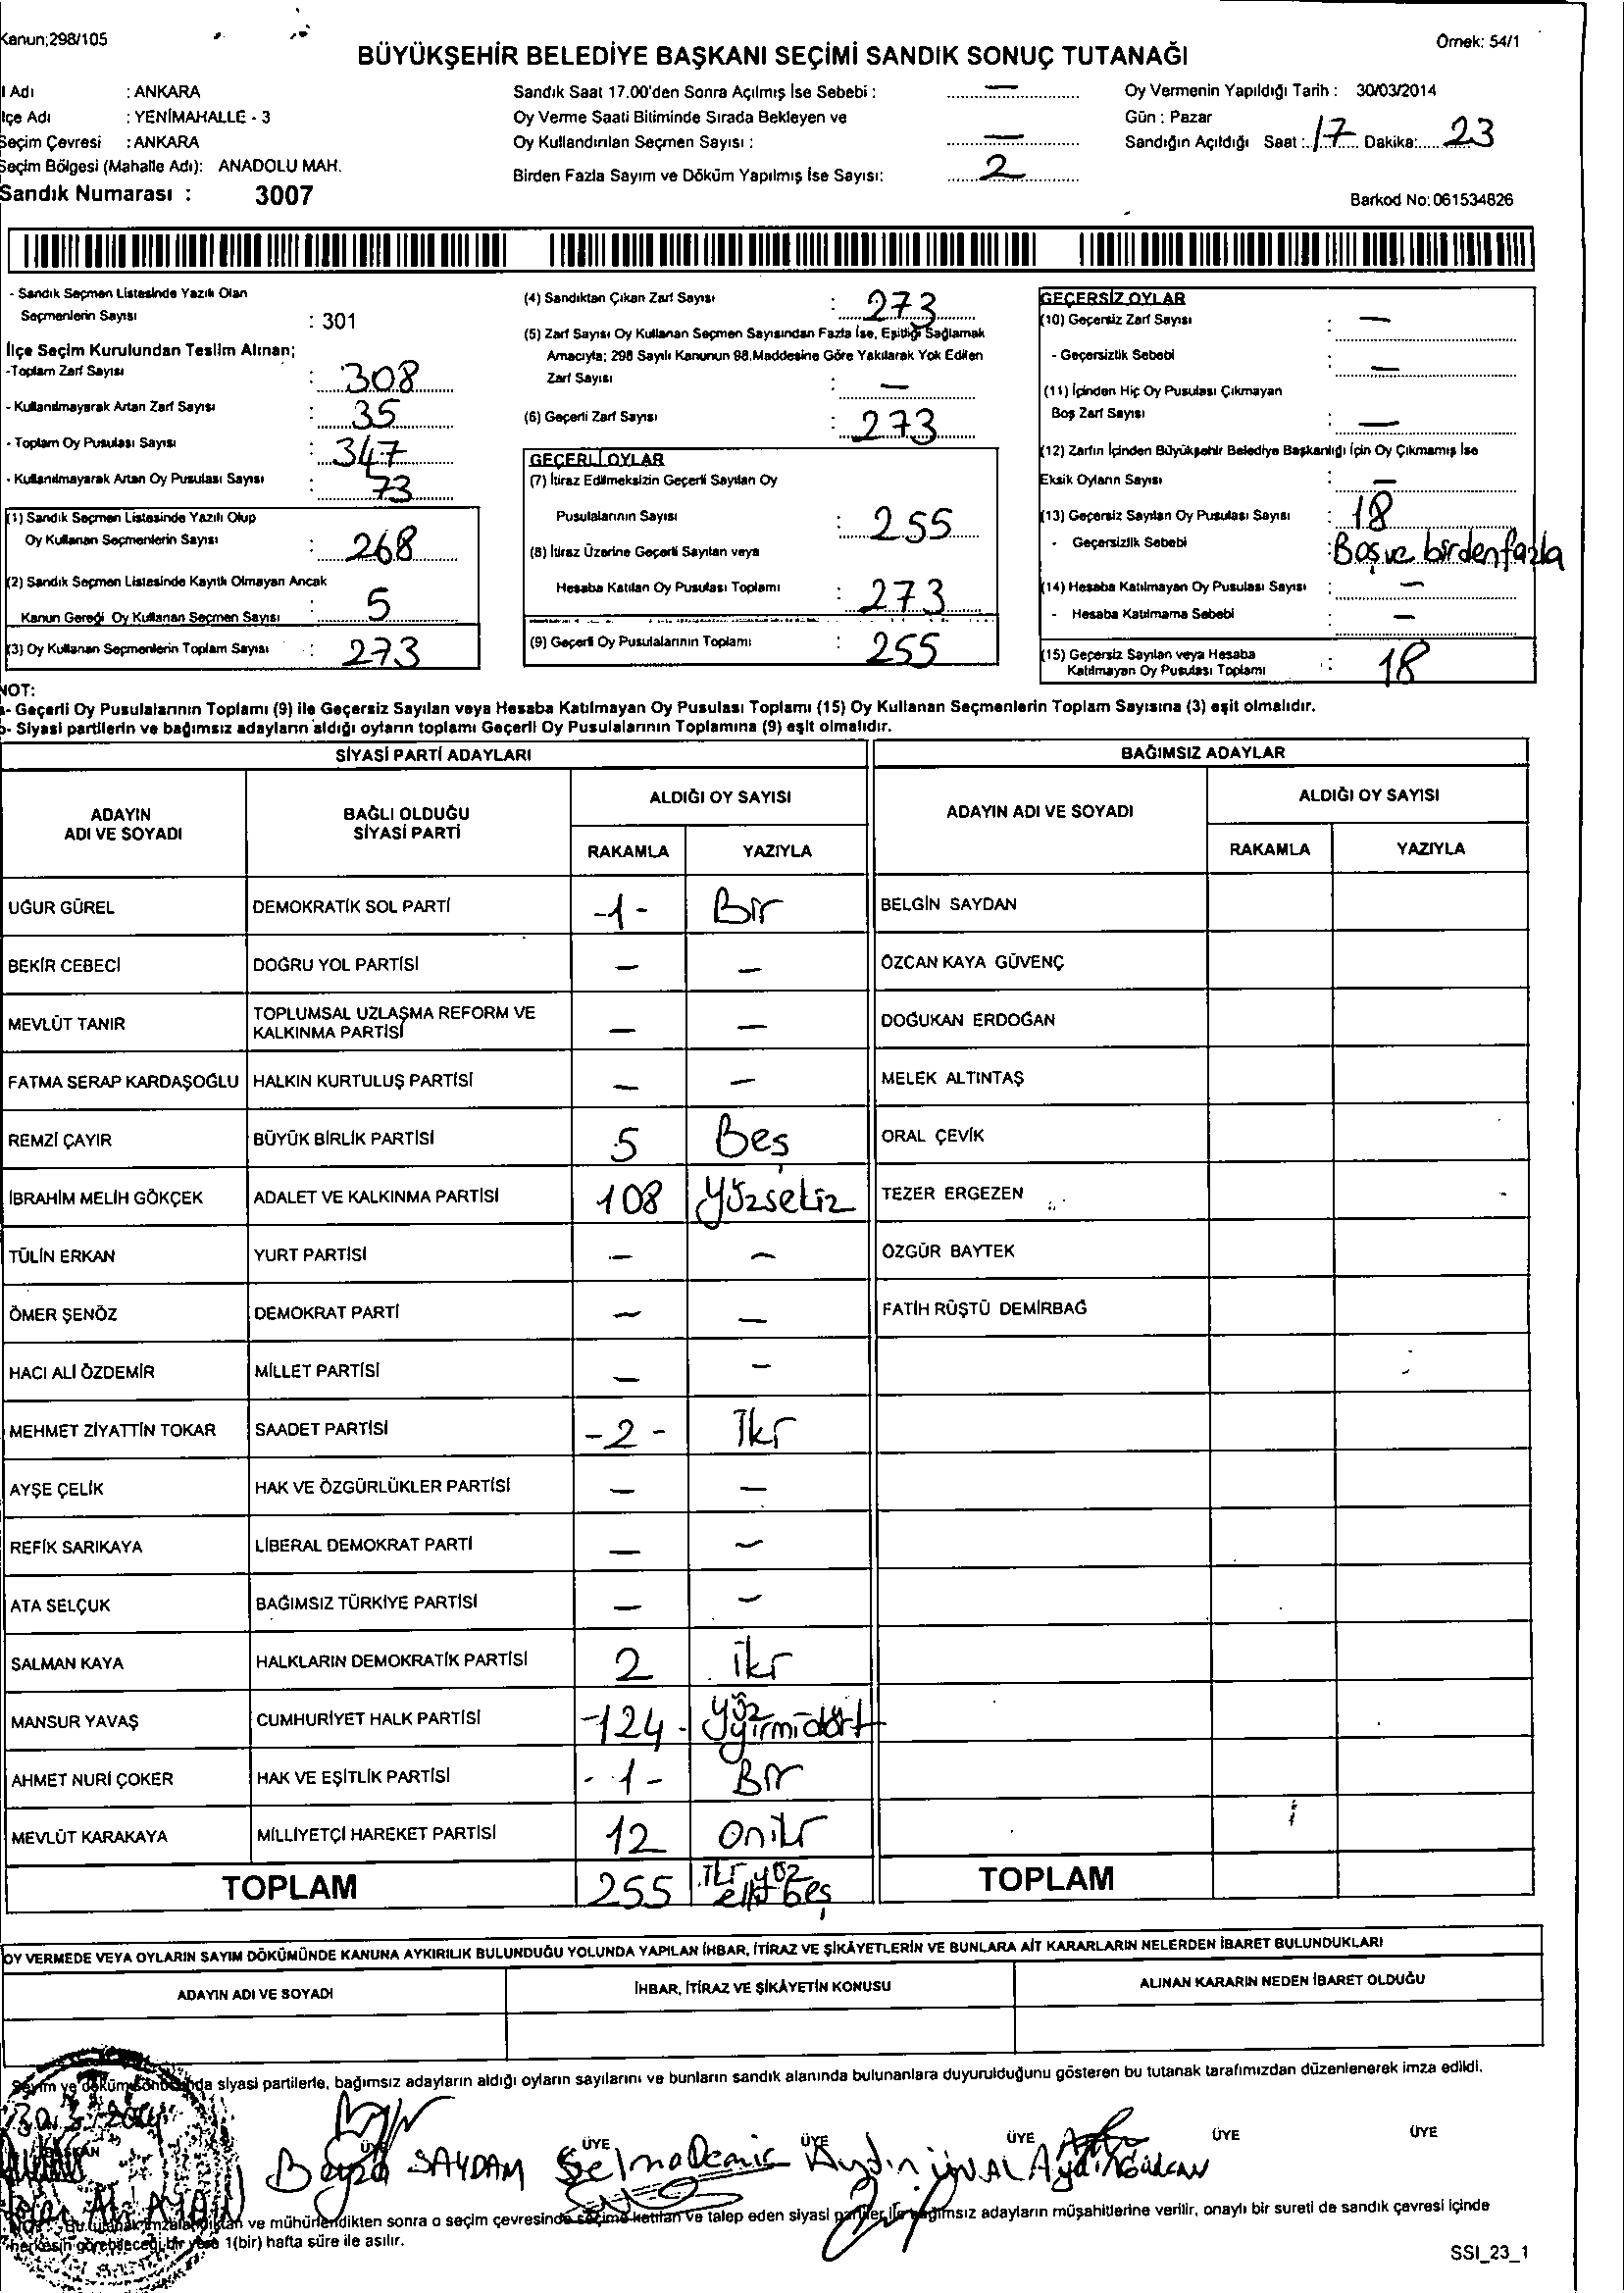 Kanun;298/105
Örnek: 54/1
BÜYÜKŞEHİR BELEDİYE BAŞKANI SEÇİMİ SANDIK SONUÇ TUTANAĞI
l Adı : ANKARA
İlçe Adı : YENİMAHALLE - 3
Seçim Çevresi : ANKARA
Seçim Bölgesi (Mahalle Adı): ANADOLU MAH.
Sandık Numarası : 3007
Sandık Saat 17.00'den Sonra Açılmış İse Sebebi : —
Oy Verme Saati Bitiminde Sırada Bekleyen ve
Oy Kullandırılan Seçmen Sayısı : —
Birden Fazla Sayım ve Döküm Yapılmış İse Sayısı: 2
Oy Vermenin Yapıldığı Tarih : 30/03/2014
Gün : Pazar
Sandığın Açıldığı Saat : 17 Dakika: 23
Barkod No: 061534826
- Sandık Seçmen Listesinde Yazılı Olan
Seçmenlerin Sayısı : 301
İlçe Seçim Kurulundan Teslim Alınan;
-Toplam Zarf Sayısı : 308
- Kullanılmayarak Artan Zarf Sayısı : 35
- Toplam Oy Pusulası Sayısı : 347
- Kullanılmayarak Artan Oy Pusulası Sayısı : 73
(1) Sandık Seçmen Listesinde Yazılı Olup
Oy Kullanan Seçmenlerin Sayısı : 268
(2) Sandık Seçmen Listesinde Kayıtlı Olmayan Ancak
Kanun Gereği Oy Kullanan Seçmen Sayısı : 5
(3) Oy Kullanan Seçmenlerin Toplam Sayısı : 273
(4) Sandıktan Çıkan Zarf Sayısı : 273
(5) Zarf Sayısı Oy Kullanan Seçmen Sayısından Fazla İse, Eşitliği Sağlamak
Amacıyla; 298 Sayılı Kanunun 98.Maddesine Göre Yakılarak Yok Edilen
Zarf Sayısı : —
(6) Geçerli Zarf Sayısı : 273
GEÇERLİ OYLAR
(7) İtiraz Edilmeksizin Geçerli Sayılan Oy
Pusulalarının Sayısı : 255
(8) İtiraz Üzerine Geçerli Sayılan veya
Hesaba Katılan Oy Pusulası Toplamı : 273
(9) Geçerli Oy Pusulalarının Toplamı : 255
GEÇERSİZ OYLAR
(10) Geçersiz Zarf Sayısı : —
- Geçersizlik Sebebi : —
(11) İçinden Hiç Oy Pusulası Çıkmayan
Boş Zarf Sayısı : —
(12) Zarfın İçinden Büyükşehir Belediye Başkanlığı İçin Oy Çıkmamış İse
Eksik Oyların Sayısı : —
(13) Geçersiz Sayılan Oy Pusulası Sayısı : 18
- Geçersizlik Sebebi : Boş ve birden fazla
(14) Hesaba Katılmayan Oy Pusulası Sayısı : —
- Hesaba Katılmama Sebebi : —
(15) Geçersiz Sayılan veya Hesaba
Katılmayan Oy Pusulası Toplamı : 18
NOT:
a- Geçerli Oy Pusulalarının Toplamı (9) ile Geçersiz Sayılan veya Hesaba Katılmayan Oy Pusulası Toplamı (15) Oy Kullanan Seçmenlerin Toplam Sayısına (3) eşit olmalıdır.
b- Siyasi partilerin ve bağımsız adayların aldığı oyların toplamı Geçerli Oy Pusulalarının Toplamına (9) eşit olmalıdır.
SİYASİ PARTİ ADAYLARI BAĞIMSIZ ADAYLAR
ADAYIN
ADI VE SOYADI
BAĞLI OLDUĞU
SİYASİ PARTİ
ALDIĞI OY SAYISI
RAKAMLA YAZIYLA
ADAYIN ADI VE SOYADI
ALDIĞI OY SAYISI
RAKAMLA YAZIYLA
UĞUR GÜREL DEMOKRATİK SOL PARTİ -1- Bir BELGİN SAYDAN
BEKİR CEBECİ DOĞRU YOL PARTİSİ — — ÖZCAN KAYA GÜVENÇ
MEVLÜT TANIR TOPLUMSAL UZLAŞMA REFORM VE
KALKINMA PARTİSİ — — DOĞUKAN ERDOĞAN
FATMA SERAP KARDAŞOĞLU HALKIN KURTULUŞ PARTİSİ — — MELEK ALTINTAŞ
REMZİ ÇAYIR BÜYÜK BİRLİK PARTİSİ 5 Beş ORAL ÇEVİK
İBRAHİM MELİH GÖKÇEK ADALET VE KALKINMA PARTİSİ 108 Yüzsekiz TEZER ERGEZEN
TÜLİN ERKAN YURT PARTİSİ — — ÖZGÜR BAYTEK
ÖMER ŞENÖZ DEMOKRAT PARTİ — — FATİH RÜŞTÜ DEMİRBAĞ
HACI ALİ ÖZDEMİR MİLLET PARTİSİ — —
MEHMET ZİYATTİN TOKAR SAADET PARTİSİ -2- İki
AYŞE ÇELİK HAK VE ÖZGÜRLÜKLER PARTİSİ — —
REFİK SARIKAYA LİBERAL DEMOKRAT PARTİ — —
ATA SELÇUK BAĞIMSIZ TÜRKİYE PARTİSİ — —
SALMAN KAYA HALKLARIN DEMOKRATİK PARTİSİ 2 iki
MANSUR YAVAŞ CUMHURİYET HALK PARTİSİ -124- Yüz
yirmidört
AHMET NURİ ÇOKER HAK VE EŞİTLİK PARTİSİ -1- Bir
MEVLÜT KARAKAYA MİLLİYETÇİ HAREKET PARTİSİ 12 Oniki
TOPLAM 255 İki yüz
elli beş
TOPLAM
OY VERMEDE VEYA OYLARIN SAYIM DÖKÜMÜNDE KANUNA AYKIRILIK BULUNDUĞU YOLUNDA YAPILAN İHBAR, İTİRAZ VE ŞİKÂYETLERİN VE BUNLARA AİT KARARLARIN NELERDEN İBARET BULUNDUKLARI
ADAYIN ADI VE SOYADI İHBAR, İTİRAZ VE ŞİKÂYETİN KONUSU ALINAN KARARIN NEDEN İBARET OLDUĞU
Sayım ve döküm sonucunda siyasi partilerle, bağımsız adayların aldığı oyların sayılarını ve bunların sandık alanında bulunanlara duyurulduğunu gösteren bu tutanak tarafımızdan düzenlenerek imza edildi.
30.3.2014
BAŞKAN ÜYE ÜYE ÜYE ÜYE ÜYE ÜYE
Beyza SAYDAM Selma Demir Aydın ÜNAL
NOT : Bu tutanak imzalandıktan ve mühürlendikten sonra o seçim çevresinde seçime katılan ve talep eden siyasi partiler ile bağımsız adayların müşahitlerine verilir, onaylı bir sureti de sandık çevresi içinde
herkesin görebileceği bir yere 1(bir) hafta süre ile asılır.
SSI_23_1